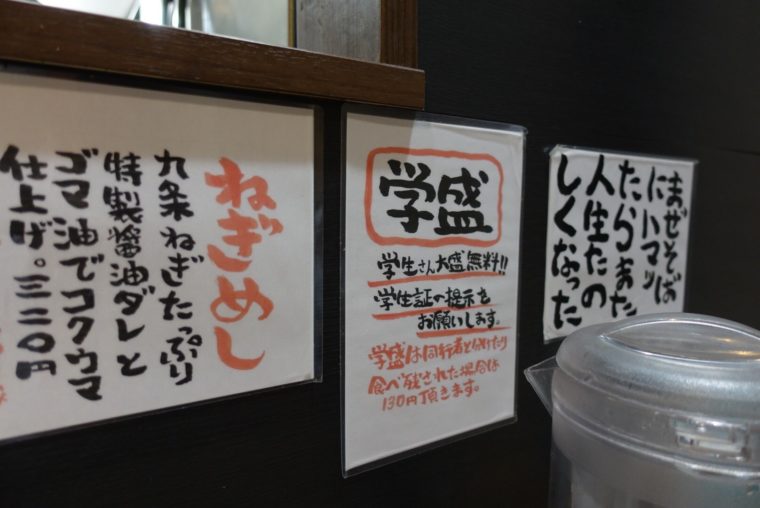 ねぎめし
九条ねぎたっぷり
特製醤油ダレと
ゴマ油でコクウマ
仕上げ。三二〇円
学盛
学生さん大盛無料!!
学生証の提示を
お願いします。
学盛は同行者と分けたり
食べ残された場合は
130円頂きます。
まぜそば
にハマッ
たらまた
人生たの
しくなった